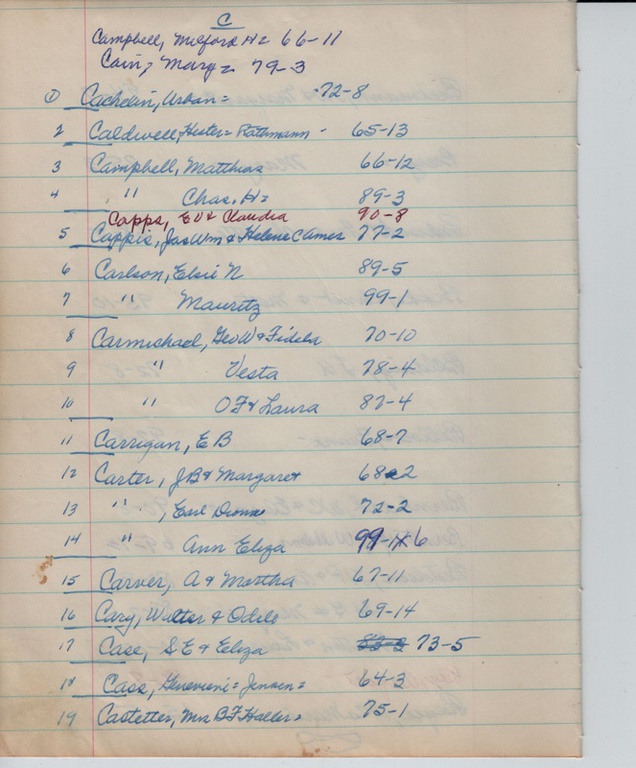 C
Campbell, Milford H = 66-11
Cain, Mary = 79-3
1 Cachelin, Urban = 72-8
2 Caldwell, Hester = Rathmann - 65-13
3 Campbell, Matthias 66-12
4 " Chas. H = 89-3
Capps, E V & Claudia 90-8
5 Cappis, Jas Wm & Helene C Ames 77-2
6 Carlson, Elsie N 89-5
7 " Mauritz 99-1
8 Carmichael, Geo W & Fidelia 70-10
9 " Vesta 78-4
10 " O F & Laura 87-4
11 Carrigan, E B 68-7
12 Carter, J B & Margaret 68-2
13 " , Earl 72-2
14 " Ann Eliza 99-6
15 Carver, A & Martha 67-11
16 Cary, Walter & Odele 69-14
17 Case, S E & Eliza 73-5
18 Cass, Genevieve = Jensen = 64-3
19 Castetter, Mrs B F Haller = 75-1